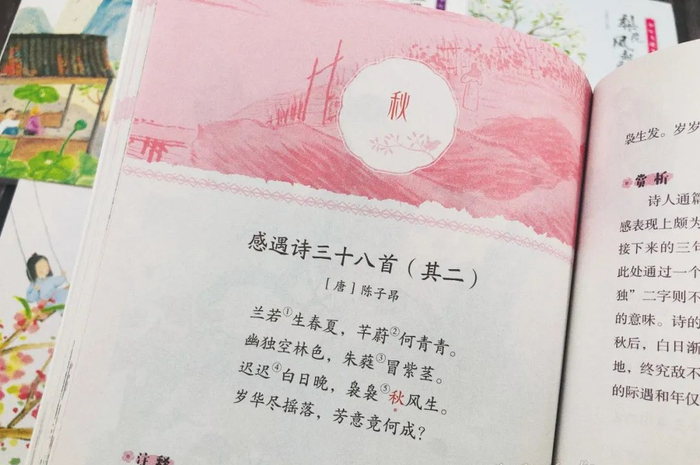 秋
感遇诗三十八首（其二）
［唐］陈子昂
兰若①生春夏，芊蔚②何青青。
幽独空林色，朱蕤③冒紫茎。
迟迟④白日晚，袅袅⑤秋风生。
岁华尽摇落，芳意竟何成？
注释
袅生发。岁岁
赏析
诗人通篇
感表现上颇为
接下来的三句
此处通过一个
独”二字则不
的意味。诗的
秋后，白日渐
地，终究敌不
的际遇和年仅